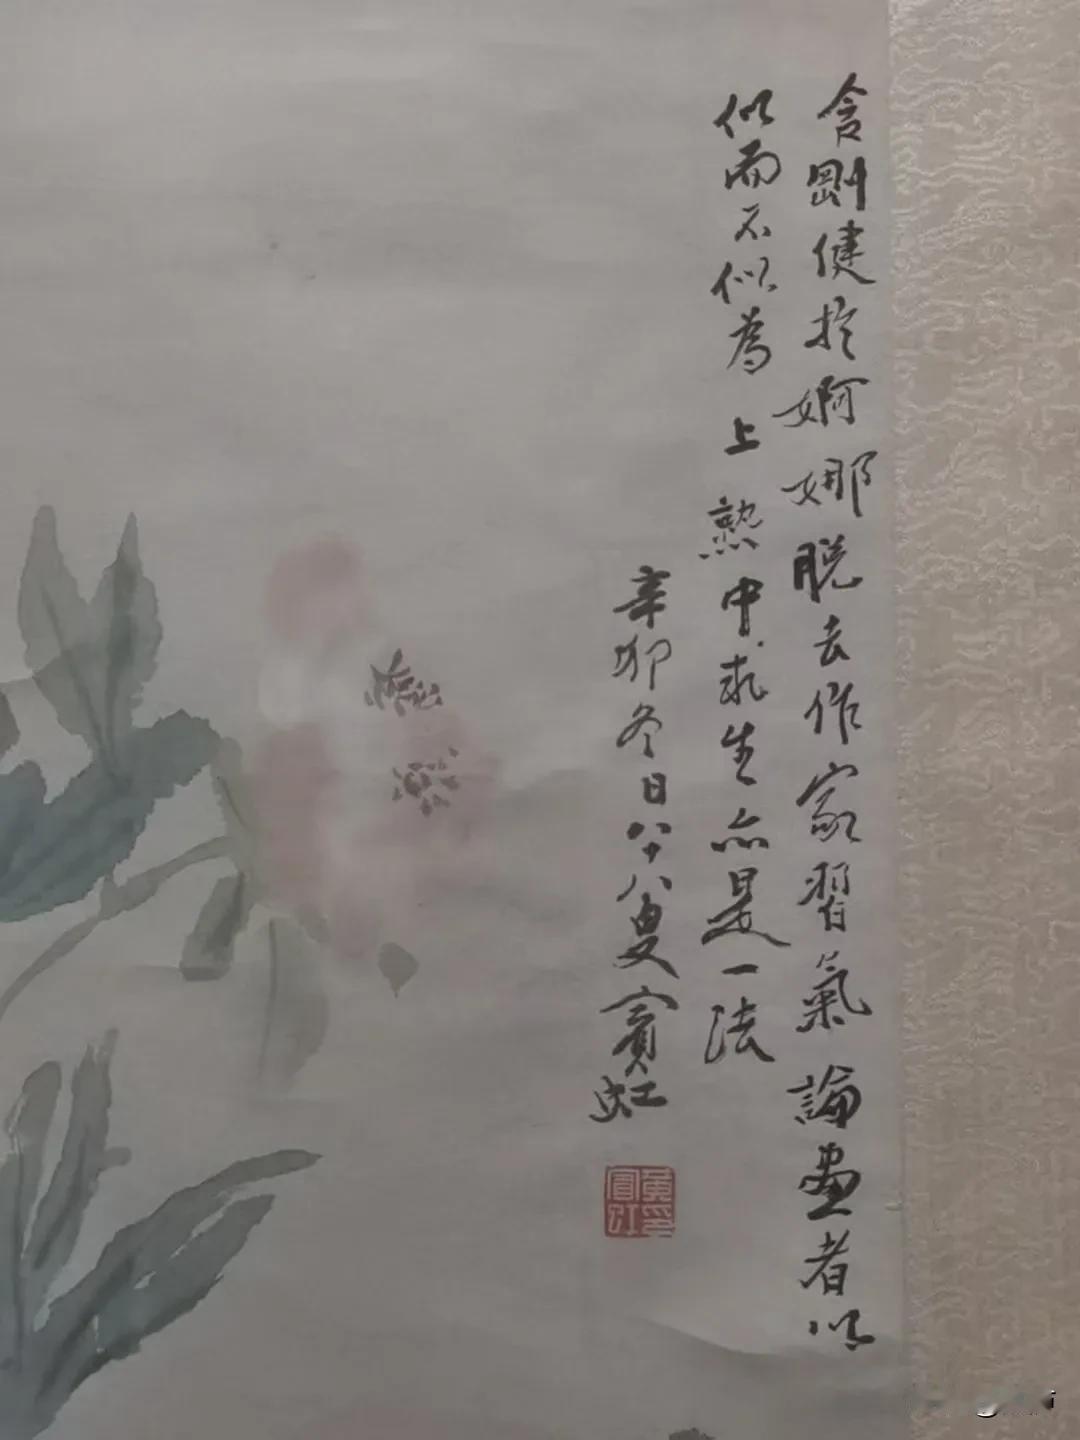 含剛健於婀娜脫去作家習氣論畫者以
似而不似為上熟中求生亦是一法
辛卯冬日八十八叟賓虹
黃賓虹印